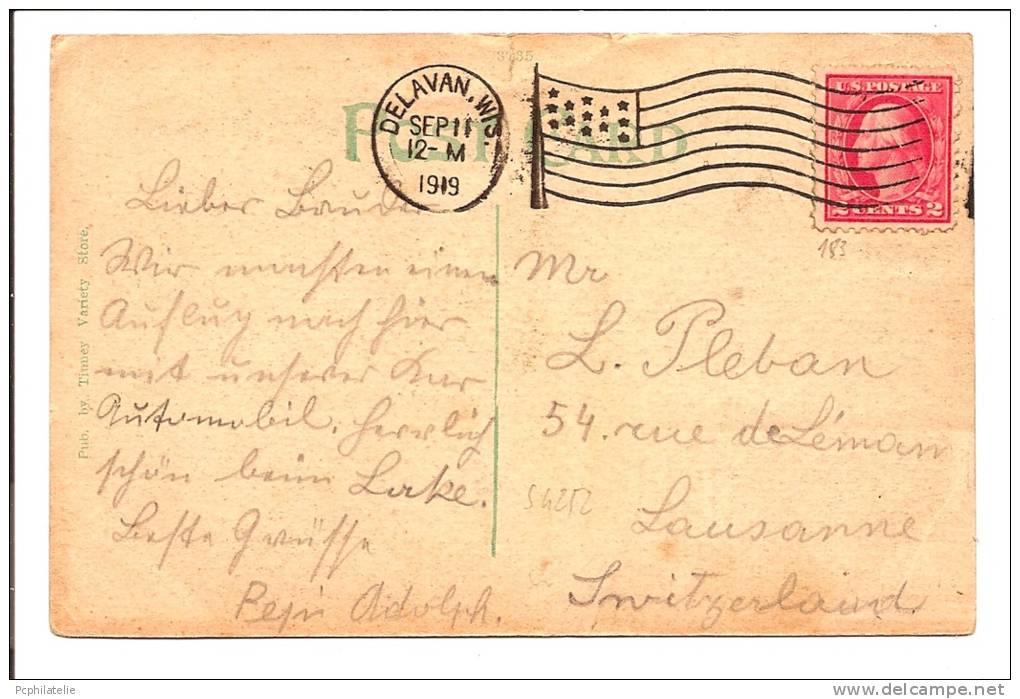 3735
POST CARD
DELAVAN, WIS.
SEP 11
12-M
1919
U.S. POSTAGE
2 CENTS 2
183
Pub. by Tinney Variety Store,
Lieber Bruder
Wir machten einen
Ausflug nach hier
mit unserer Kar
Automobil. Herrlich
schön beim Lake.
Beste Grüsse
Adolph.
Mr
L. Pleban
54. rue de Léman
Lausanne
Switzerland.
S4252
Pcphilatelie